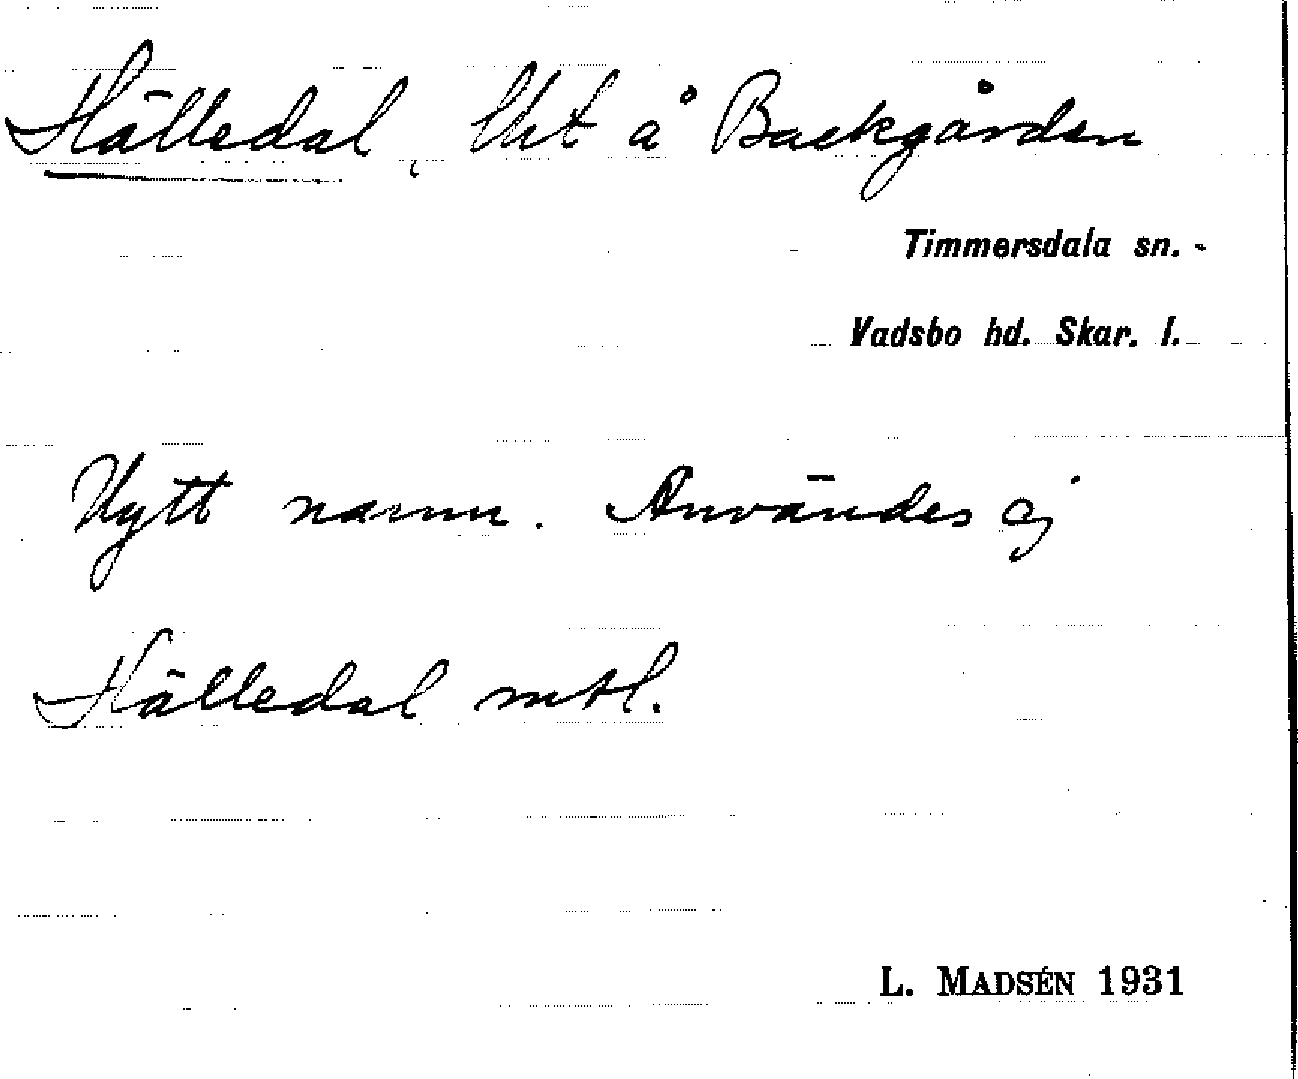 Hälledal, lht å Backgården
Timmersdala sn.
Vadsbo hd. Skar. l.
Nytt namn. Användes ej
Hälledal mtl.
L. MADSÉN 1931